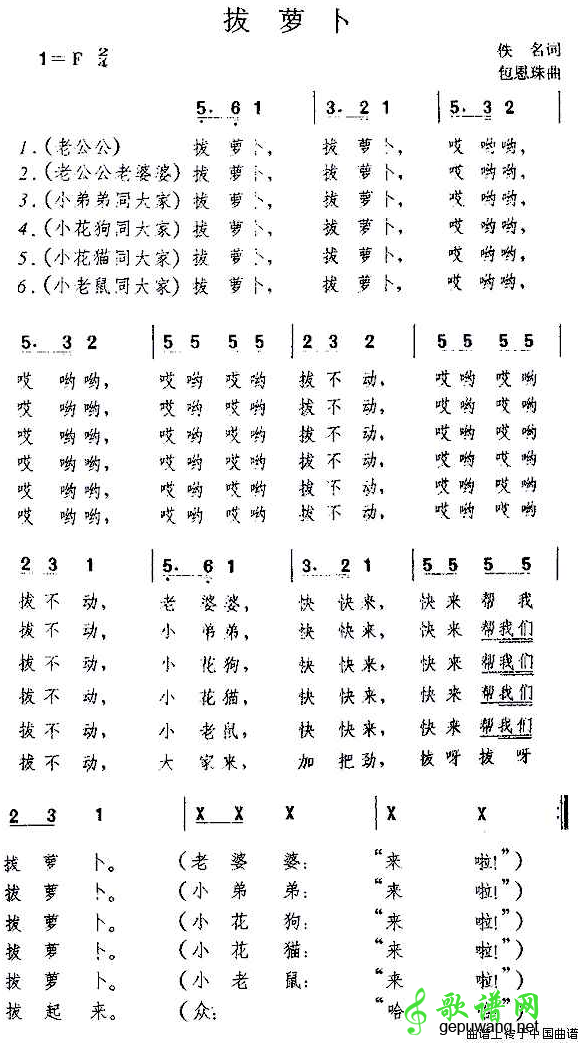 拔萝卜
1=F 2/4
佚名词
包恩珠曲
5. 6 1 | 3. 2 1 | 5. 3 2
1.(老公公)拔萝卜, 拔萝卜, 哎哟哟,
2.(老公公老婆婆)拔萝卜, 拔萝卜, 哎哟哟,
3.(小弟弟同大家)拔萝卜, 拔萝卜, 哎哟哟,
4.(小花狗同大家)拔萝卜, 拔萝卜, 哎哟哟,
5.(小花猫同大家)拔萝卜, 拔萝卜, 哎哟哟,
6.(小老鼠同大家)拔萝卜, 拔萝卜, 哎哟哟,
5. 3 2 | 5 5 5 5 | 2 3 2 | 5 5 5 5
哎哟哟, 哎哟哎哟 拔不动, 哎哟哎哟
哎哟哟, 哎哟哎哟 拔不动, 哎哟哎哟
哎哟哟, 哎哟哎哟 拔不动, 哎哟哎哟
哎哟哟, 哎哟哎哟 拔不动, 哎哟哎哟
哎哟哟, 哎哟哎哟 拔不动, 哎哟哎哟
哎哟哟, 哎哟哎哟 拔不动, 哎哟哎哟
2 3 1 | 5. 6 1 | 3. 2 1 | 5 5 5 5
拔不动, 老婆婆, 快快来, 快来帮我
拔不动, 小弟弟, 快快来, 快来帮我们
拔不动, 小花狗, 快快来, 快来帮我们
拔不动, 小花猫, 快快来, 快来帮我们
拔不动, 小老鼠, 快快来, 快来帮我们
拔不动, 大家来, 加把劲, 拔呀拔呀
2 3 1 | X X X | X X :||
拔萝卜。(老婆婆:“来啦!”)
拔萝卜。(小弟弟:“来啦!”)
拔萝卜。(小花狗:“来啦!”)
拔萝卜。(小花猫:“来啦!”)
拔萝卜。(小老鼠:“来啦!”)
拔起来。(众:“哈
歌谱网
gepuwang.net
曲谱上传于中国曲谱